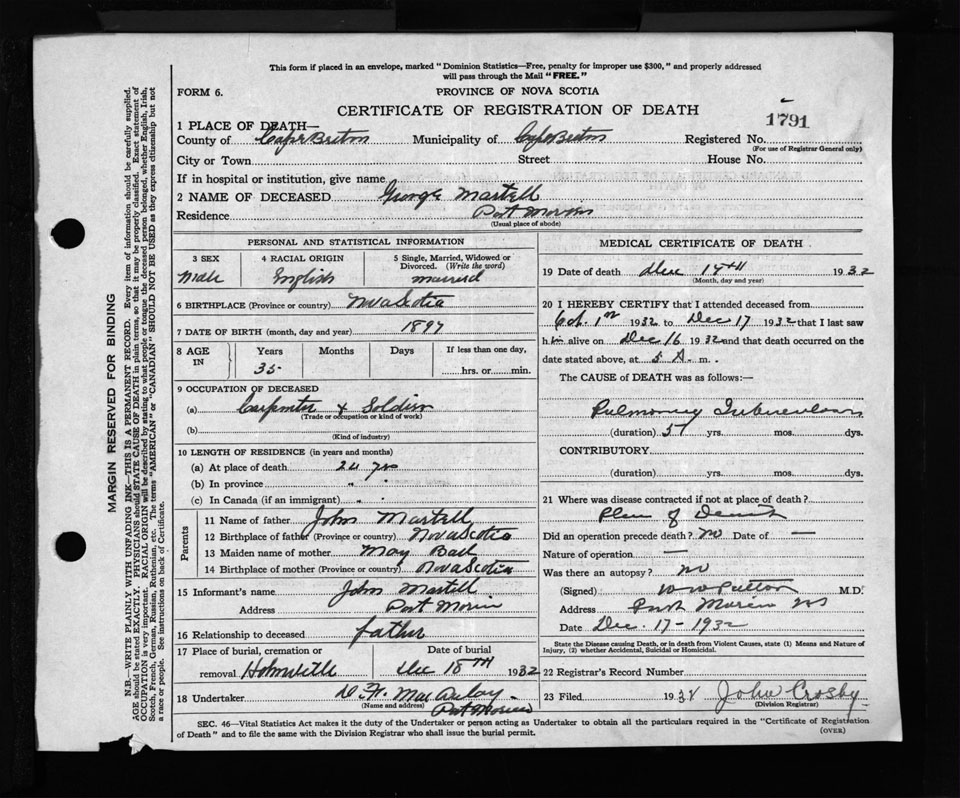 This form if placed in an envelope, marked "Dominion Statistics—Free, penalty for improper use $300," and properly addressed
will pass through the Mail "FREE."
FORM 6.
PROVINCE OF NOVA SCOTIA
CERTIFICATE OF REGISTRATION OF DEATH
1791
1 PLACE OF DEATH—
County of Cape Breton Municipality of Cape Breton Registered No.
(For use of Registrar General only)
City or Town Street House No.
If in hospital or institution, give name
2 NAME OF DECEASED George Martell
Residence Port Morien
(Usual place of abode)
PERSONAL AND STATISTICAL INFORMATION
3 SEX 4 RACIAL ORIGIN 5 Single, Married, Widowed or Divorced. (Write the word)
Male English married
6 BIRTHPLACE (Province or country) Nova Scotia
7 DATE OF BIRTH (month, day and year) 1897
8 AGE IN Years Months Days If less than one day,
35 hrs. or min.
9 OCCUPATION OF DECEASED
(a) Carpenter & Soldier
(Trade or occupation or kind of work)
(b)
(Kind of industry)
10 LENGTH OF RESIDENCE (in years and months)
(a) At place of death 24 yrs
(b) In province " "
(c) In Canada (if an immigrant) " "
Parents
11 Name of father John Martell
12 Birthplace of father (Province or country) Nova Scotia
13 Maiden name of mother May
14 Birthplace of mother (Province or country) Nova Scotia
15 Informant's name John Martell
Address Port Morien
16 Relationship to deceased father
17 Place of burial, cremation or removal Date of burial
Homeville Dec 18TH 1932
18 Undertaker D. H. MacAulay
(Name and address) Port Morien
MEDICAL CERTIFICATE OF DEATH
19 Date of death Dec 17TH 1932
(Month, day and year)
20 I HEREBY CERTIFY that I attended deceased from
1st 1932 to Dec 17 1932 that I last saw
him alive on Dec 16 1932 and that death occurred on the
date stated above, at 5 A. m.
The CAUSE of DEATH was as follows:—
Pulmonary Tuberculosis
(duration) yrs. mos. dys.
CONTRIBUTORY
(duration) yrs. mos. dys.
21 Where was disease contracted if not at place of death?
Place of Death
Did an operation precede death? no Date of —
Nature of operation —
Was there an autopsy? no
(Signed) M.D.
Address Port Morien NS
Date Dec. 17 - 1932
State the Disease causing Death, or in death from Violent Causes, state (1) Means and Nature of
Injury, (2) whether Accidental, Suicidal or Homicidal.
22 Registrar's Record Number
23 Filed 193 John Crosby
(Division Registrar)
SEC. 46—Vital Statistics Act makes it the duty of the Undertaker or person acting as Undertaker to obtain all the particulars required in the "Certificate of Registration
of Death" and to file the same with the Division Registrar who shall issue the burial permit.
(OVER)
MARGIN RESERVED FOR BINDING
N.B.—WRITE PLAINLY WITH UNFADING INK—THIS IS A PERMANENT RECORD. Every item of information should be carefully supplied.
AGE should be stated EXACTLY. PHYSICIANS should STATE CAUSE OF DEATH in plain terms, so that it may be properly classified. Exact statement of
OCCUPATION is very important. RACIAL ORIGIN will be described by stating to what people or tongue the deceased person belonged, whether English, Irish,
Scotch, French, German, Russian, Ruthenian, etc. The terms "AMERICAN" or "CANADIAN" SHOULD NOT BE USED as they express citizenship but not
a race or people. See instructions on back of Certificate.